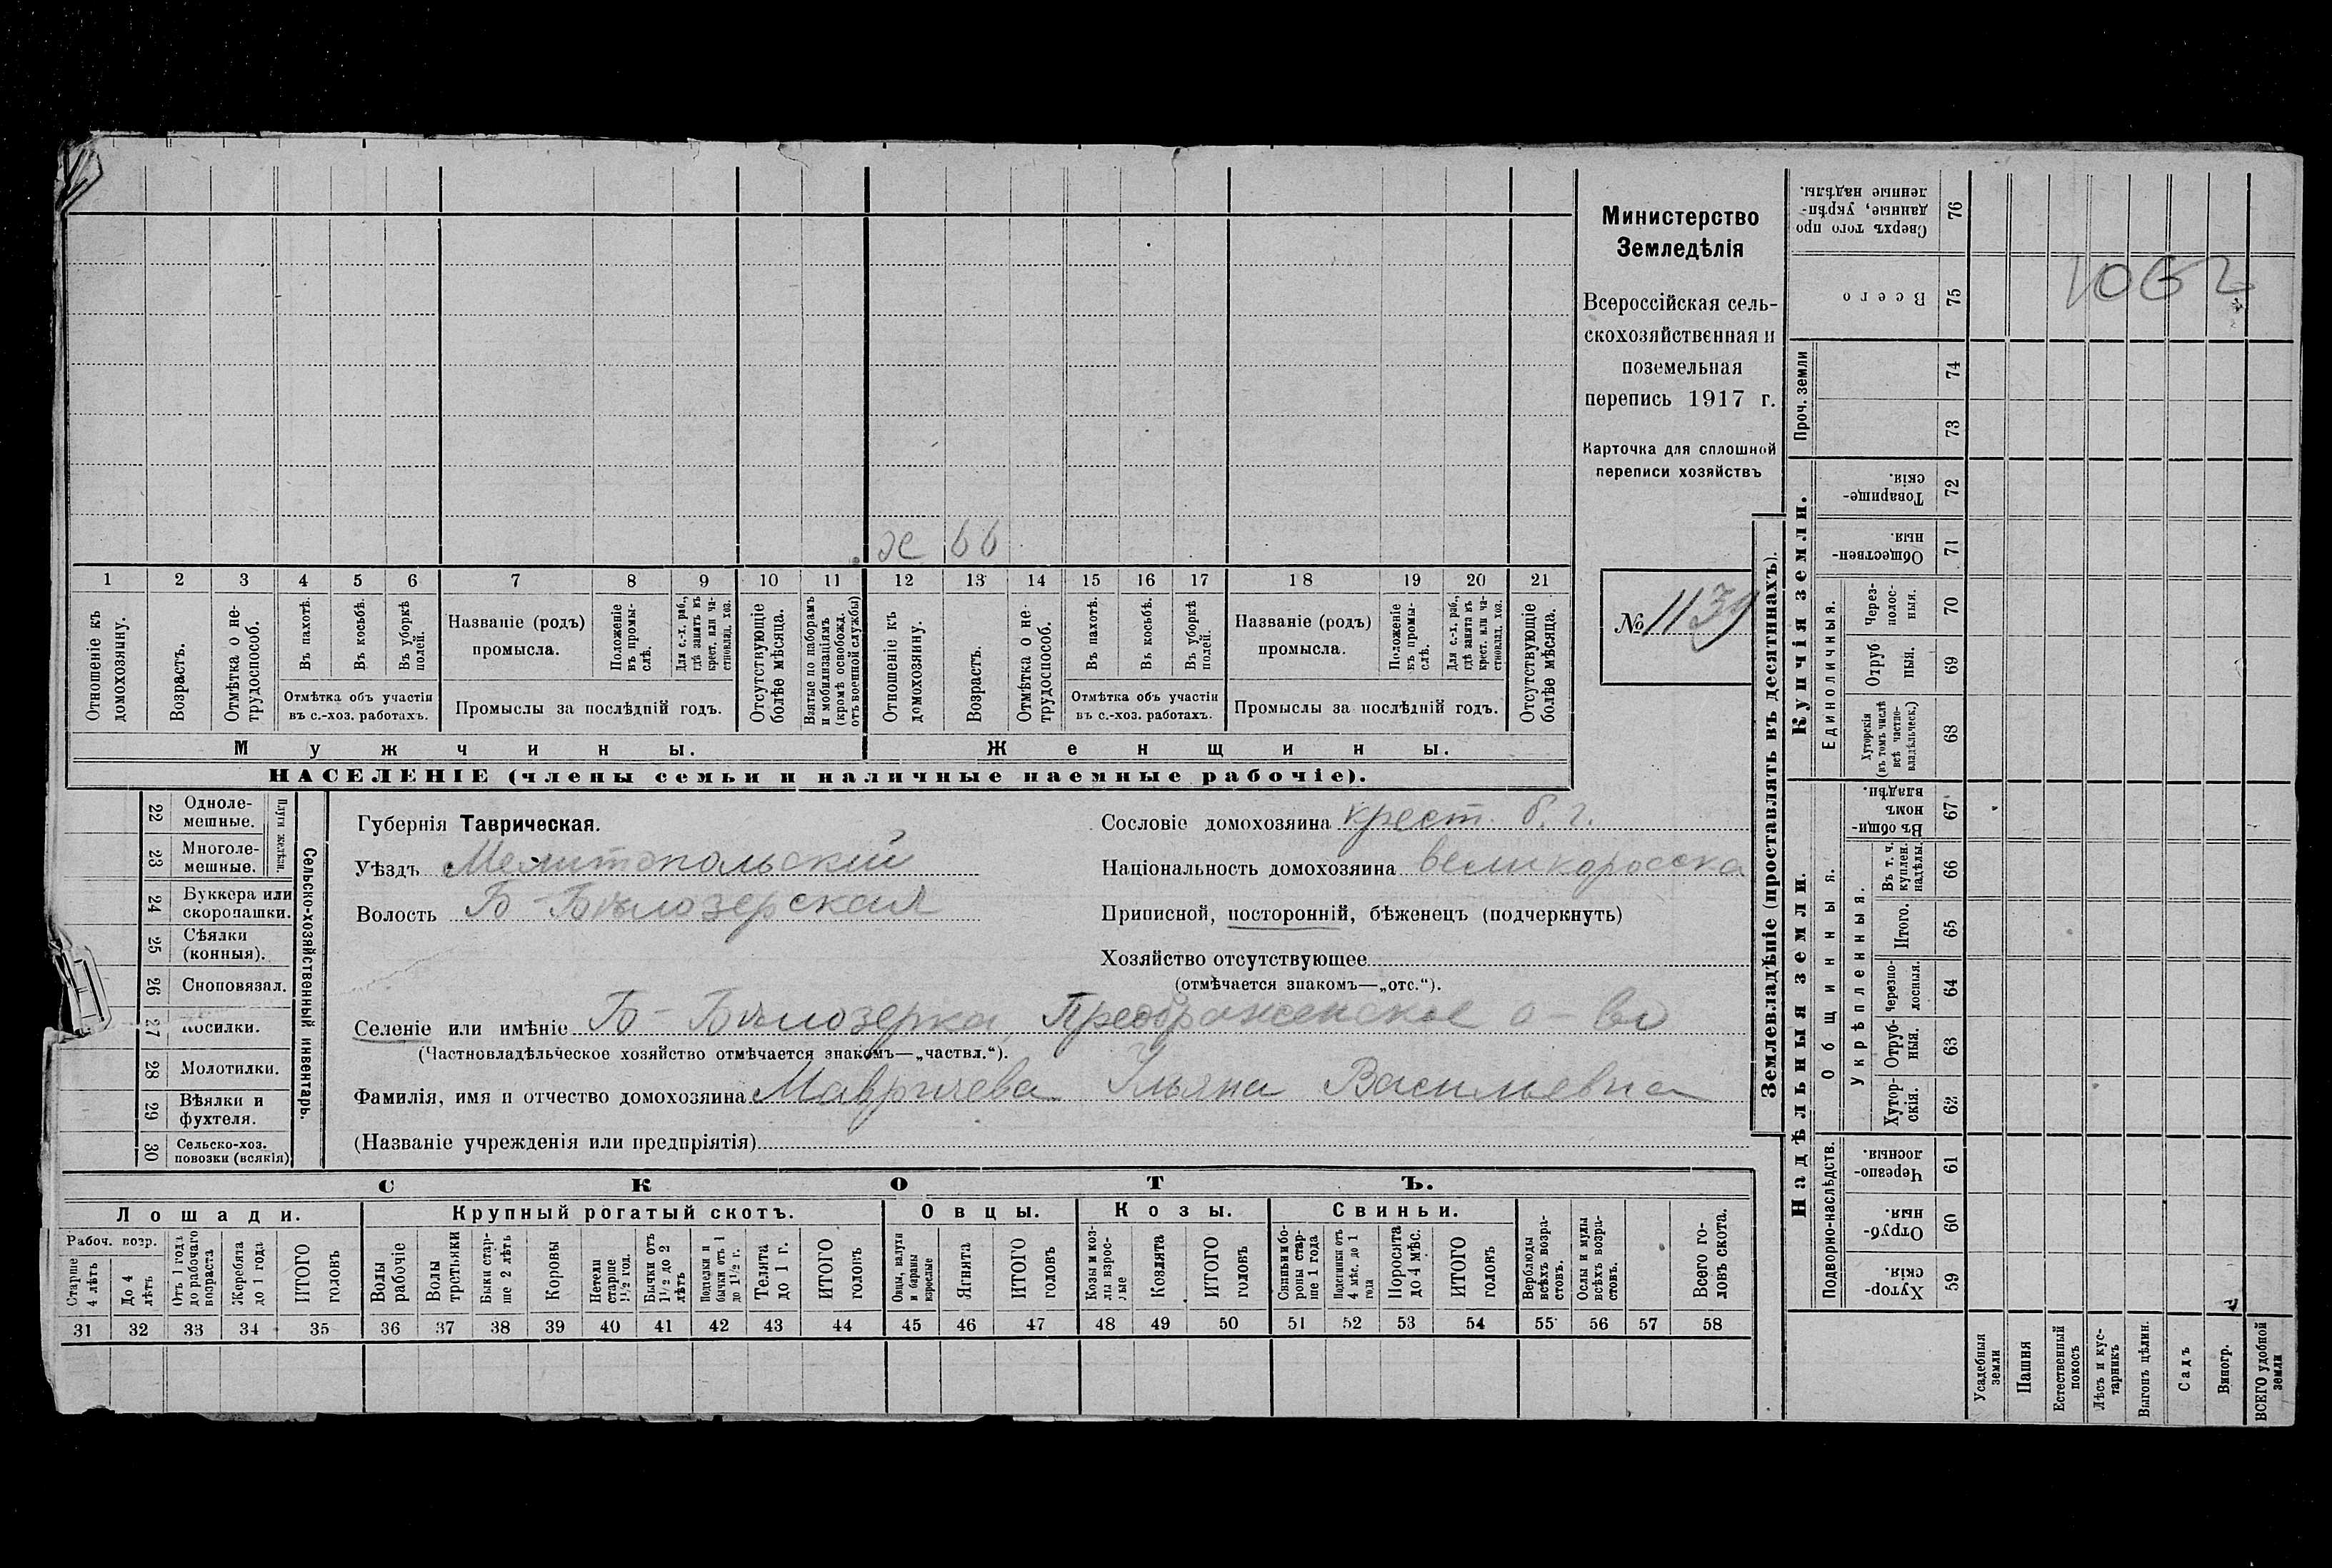 Министерство
Земледѣлія
Всероссійская сель-
скохозяйственная и
поземельная
перепись 1917 г.
Карточка для сплошной
переписи хозяйствъ
№ 1139
1062
х 66
1 2 3 4 5 6 7 8 9 10 11 12 13 14 15 16 17 18 19 20 21
Отношеніе къ домохозяину.
Возрастъ.
Отмѣтка о не-трудоспособ.
Въ пахотѣ.
Въ косьбѣ.
Въ уборкѣ полей.
Отмѣтка объ участіи
въ с.-хоз. работахъ.
Названіе (родъ)
промысла.
Положеніе въ промы-слѣ.
Для с.-х. раб., гдѣ занятъ въ крест. или ча-стновлад. хоз.
Промыслы за послѣдній годъ.
Отсутствующіе болѣе мѣсяца.
Взятые по наборамъ и мобилизаціямъ (кромѣ освобожд. отъ военной службы)
Отношеніе къ домохозяину.
Возрастъ.
Отмѣтка о не-трудоспособ.
Въ пахотѣ.
Въ косьбѣ.
Въ уборкѣ полей.
Отмѣтка объ участіи
въ с.-хоз. работахъ.
Названіе (родъ)
промысла.
Положеніе въ промы-слѣ.
Для с.-х. раб., гдѣ занята въ крест. или ча-стновлад. хоз.
Промыслы за послѣдній годъ.
Отсутствующіе болѣе мѣсяца.
Мужчины. Женщины.
НАСЕЛЕНІЕ (члены семьи и наличные наемные рабочіе).
Сельско-хозяйственный инвентарь.
Плуги желѣзн.
22 Одноле-мешные.
23 Многоле-мешные.
24 Буккера или скоропашки.
25 Сѣялки (конныя).
26 Сноповязал.
27 Косилки.
28 Молотилки.
29 Вѣялки и фухтеля.
30 Сельско-хоз. повозки (всякія)
Губернія Таврическая.
Уѣздъ Мелитопольскій
Волость Б-Бѣлозерская
Сословіе домохозяина крест. б. г.
Національность домохозяина великоросска
Приписной, посторонній, бѣженецъ (подчеркнуть)
Хозяйство отсутствующее
(отмѣчается знакомъ—„отс.“).
Селеніе или имѣніе Б-Бѣлозерка, Преображенское о-во
(Частновладѣльческое хозяйство отмѣчается знакомъ—„частвл.“).
Фамилія, имя и отчество домохозяина Мавричева Ульяна Васильевна
(Названіе учрежденія или предпріятія)
СКОТЪ.
Лошади. Крупный рогатый скотъ. Овцы. Козы. Свиньи.
Рабоч. возр.
Старше 4 лѣтъ
До 4 лѣтъ
Отъ 1 года до рабочаго возраста
Жеребята до 1 года
ИТОГО головъ
Волы рабочіе
Волы третьяки
Быки стар-ше 2 лѣтъ
Коровы
Нетели старше 1½ год.
Бычки отъ 1½ до 2 лѣтъ
Подтелки и бычки отъ 1 до 1½ г.
Телята до 1 г.
ИТОГО головъ
Овцы, валухи и бараны взрослые
Ягнята
ИТОГО головъ
Козы и коз-лы взрос-лые
Козлята
ИТОГО головъ
Свиньи и бо-ровы стар-ше 1 года
Подсвинки отъ 4 мѣс. до 1 года
Поросята до 4 мѣс.
ИТОГО головъ
Верблюды всѣхъ возра-стовъ.
Ослы и мулы всѣхъ возра-стовъ.
Всего го-ловъ скота.
31 32 33 34 35 36 37 38 39 40 41 42 43 44 45 46 47 48 49 50 51 52 53 54 55 56 57 58
Землевладѣніе (проставлять въ десятинахъ).
Надѣльныя земли.
Купчія земли.
Проч. земли
Подворно-наслѣдств.
Общинныя.
Укрѣпленныя.
Единоличныя.
76 Сверхъ того про данные, укрѣп-ленные надѣлы.
75 Всего
74
73
72 Товарище-скія.
71 Обществен-ныя.
70 Через-полос-ныя.
69 Отруб ныя.
68 Хуторскія (въ томъ числѣ всѣ частно-владѣльческ.)
67 Въ общи-номъ владѣн.
66 Въ т. ч. куплен. надѣлы.
65 Итого.
64 Черезпо-лосныя.
63 Отруб-ныя.
62 Хутор-скія.
61 Черезпо-лосныя.
60 Отруб-ныя.
59 Хутор-скія.
Усадебныя земли
Пашня
Естественный покосъ
Лѣсъ и кус-тарникъ
Выгонъ цѣлин.
Садъ
Виногр.
ВСЕГО удобной земли